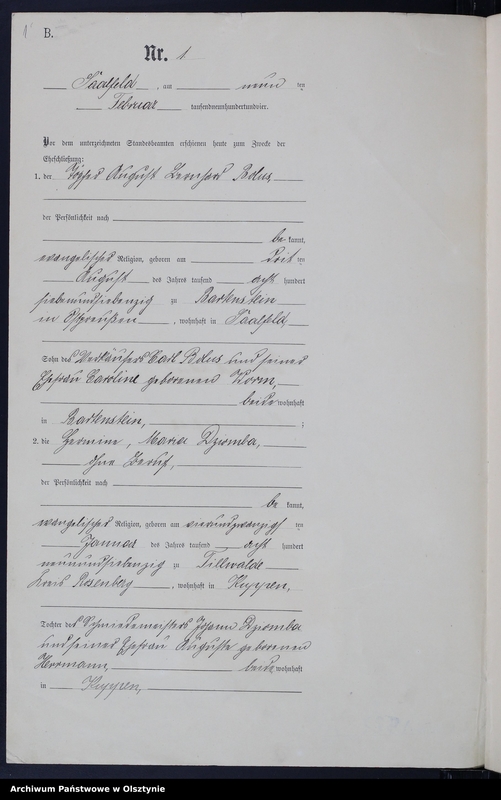 1
B.
Nr. 1
Saalfeld, am neun ten
Februar tausendneunhundertundvier.
Vor dem unterzeichneten Standesbeamten erschienen heute zum Zwecke der
Eheschließung:
1. der Töpfer August Bernhard Bolus
der Persönlichkeit nach
be kannt,
evangelischer Religion, geboren am ten
August des Jahres tausend acht hundert
siebenundsiebenzig zu Bartenstein
in Ostpreußen, wohnhaft in Saalfeld,
Sohn des Carl Bolus und seiner
Ehefrau Caroline geborenen Korm,
beide wohnhaft
in Bartenstein, ;
2. die Hermine, Maria Dziomba,
ohne Beruf,
der Persönlichkeit nach
be kannt,
evangelischer Religion, geboren am vierundzwanzigs ten
Januar des Jahres tausend acht hundert
neunundsiebenzig zu Tillwalde
Kreis Rosenberg, wohnhaft in Kuppen,
Tochter des Schmiedemeisters Johann Dziomba
und seiner Ehefrau Auguste geborenen
Herrmann, beide wohnhaft
in Kuppen,
Archiwum Państwowe w Olsztynie